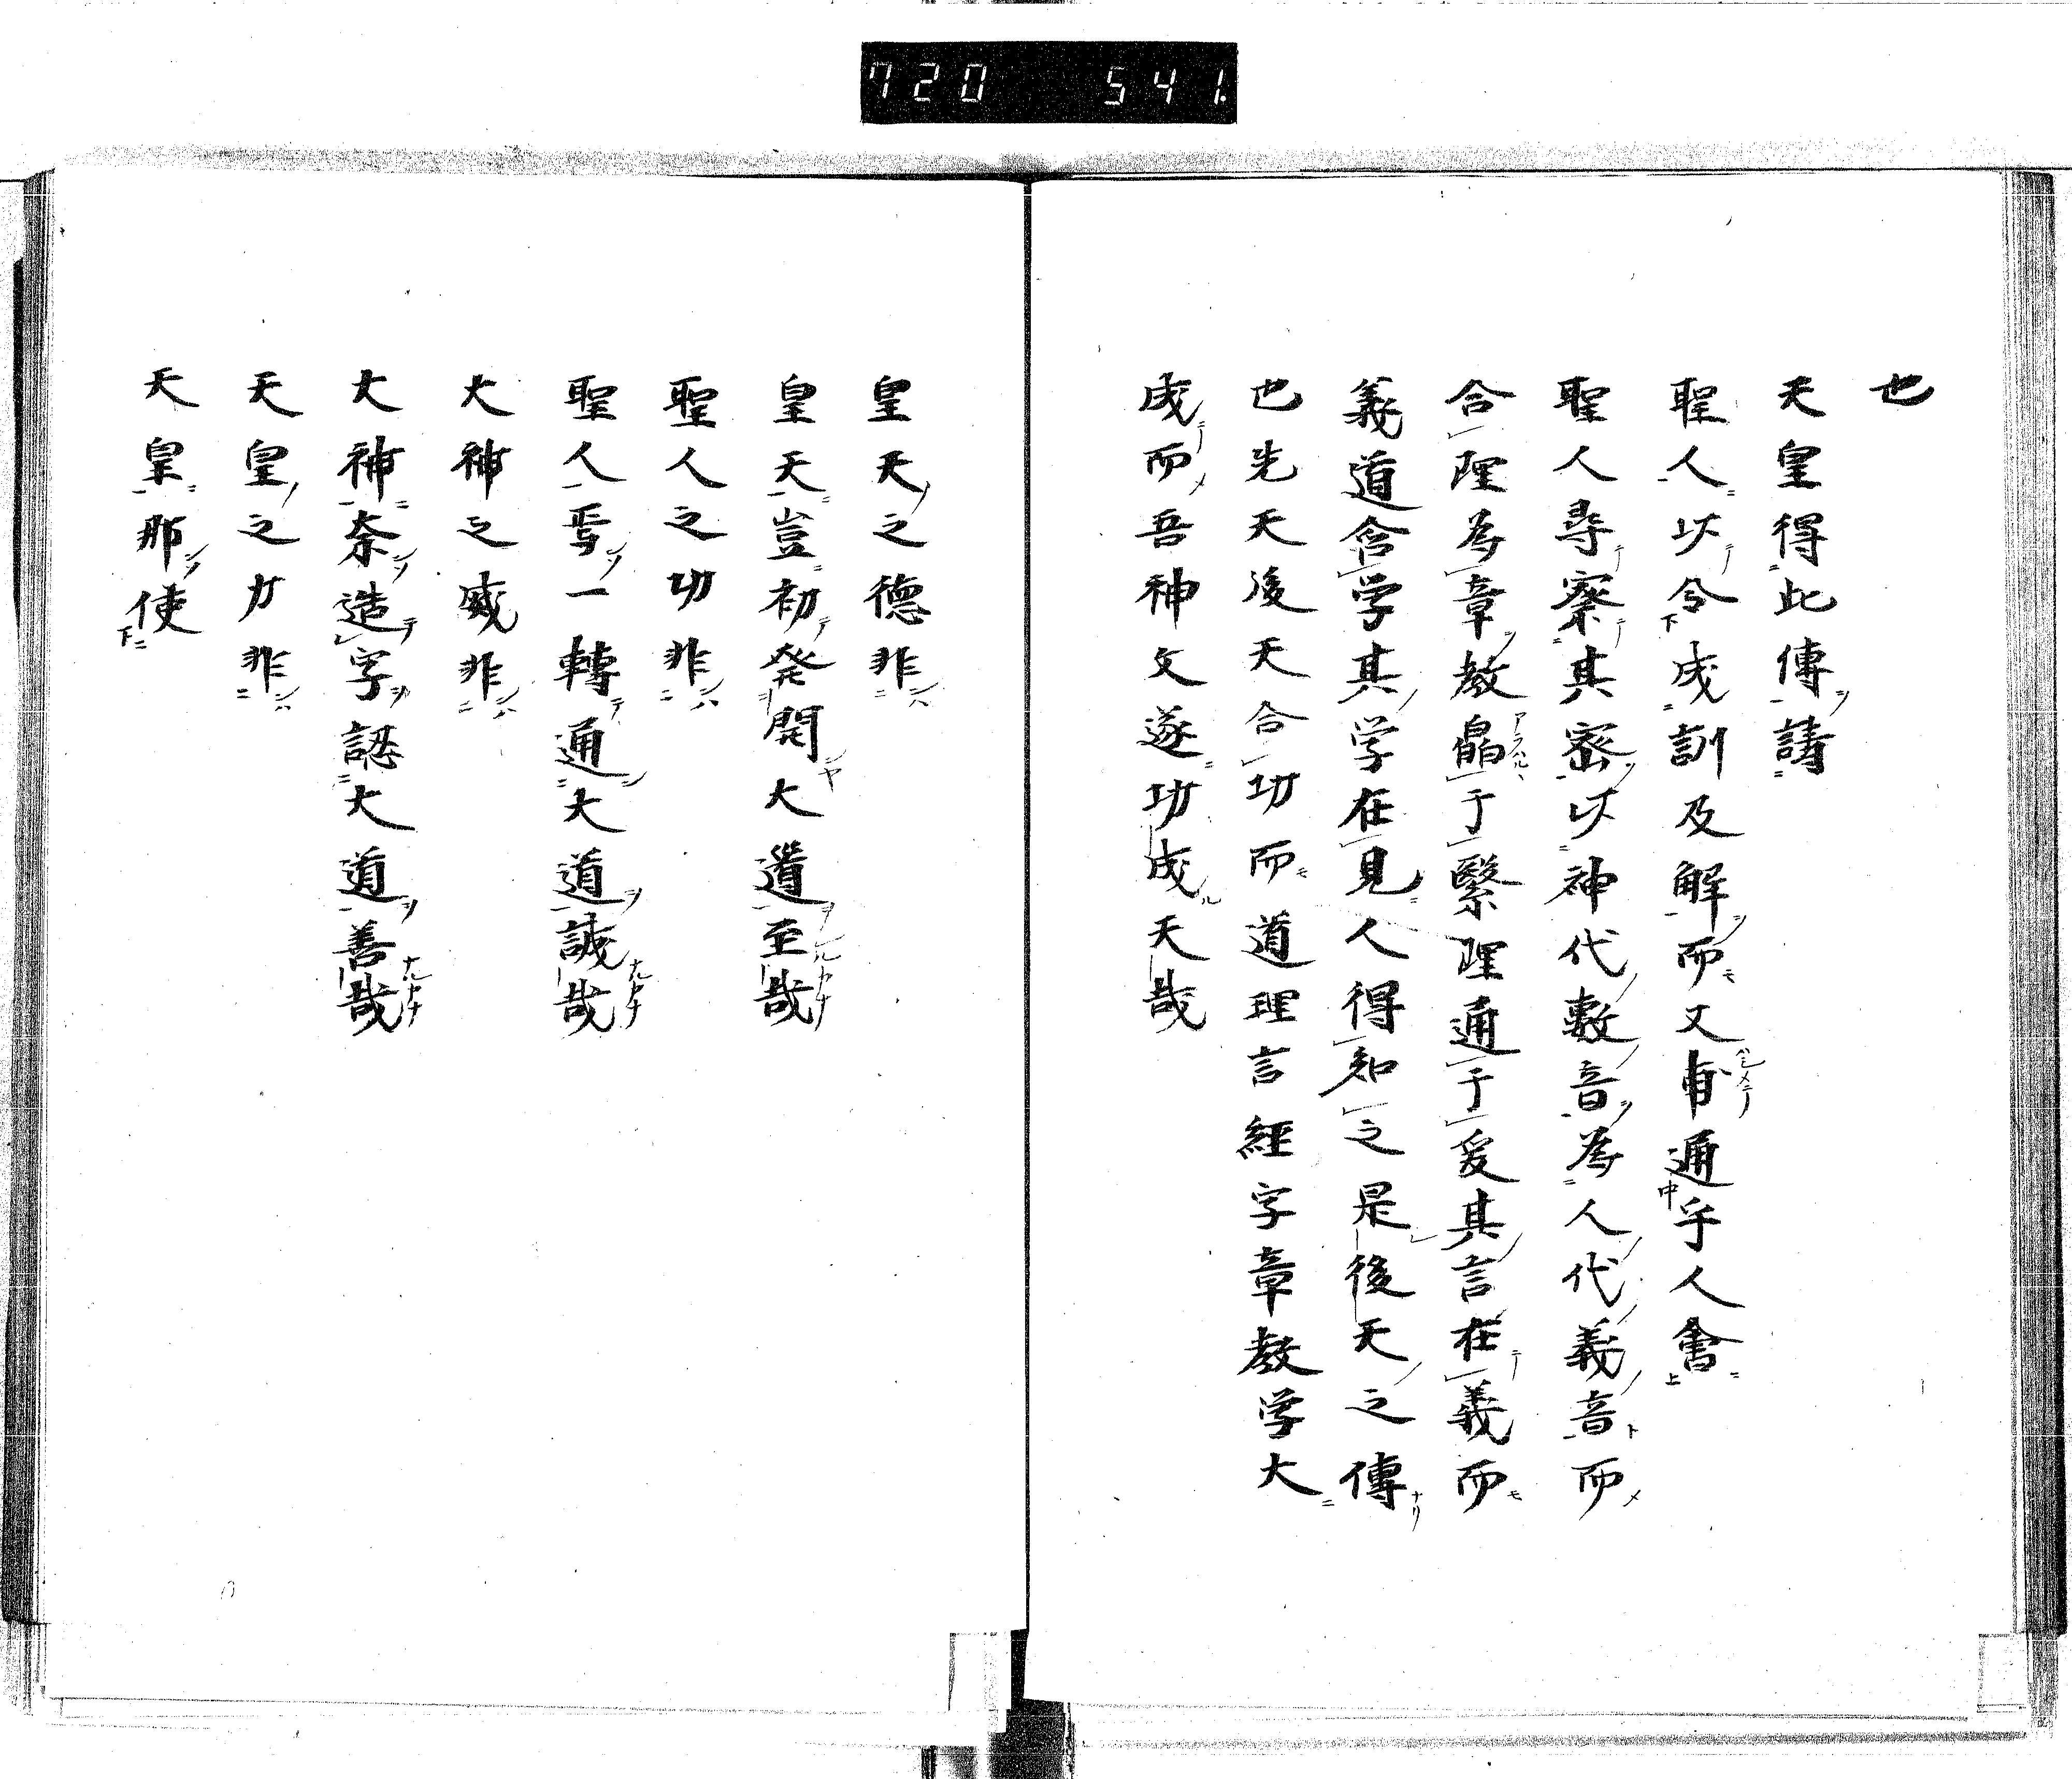 720 541.
也
天皇得此傳請
聖人以令成訓及解而又通乎人會
聖人尋察其密以神代數音為人代義音而
合理為章教皛于緊理通于爰其言在義而
義道含学其学在見人得知之是後天之傳
也先天後天合功而道理言經字章教学大
成而吾神文遂功成天哉
皇天之德非
皇天豈初発開大道至哉
聖人之功非
聖人焉一轉通大道誠哉
大神之威非
大神奈造字認大道善哉
天皇之力非
天皇那使